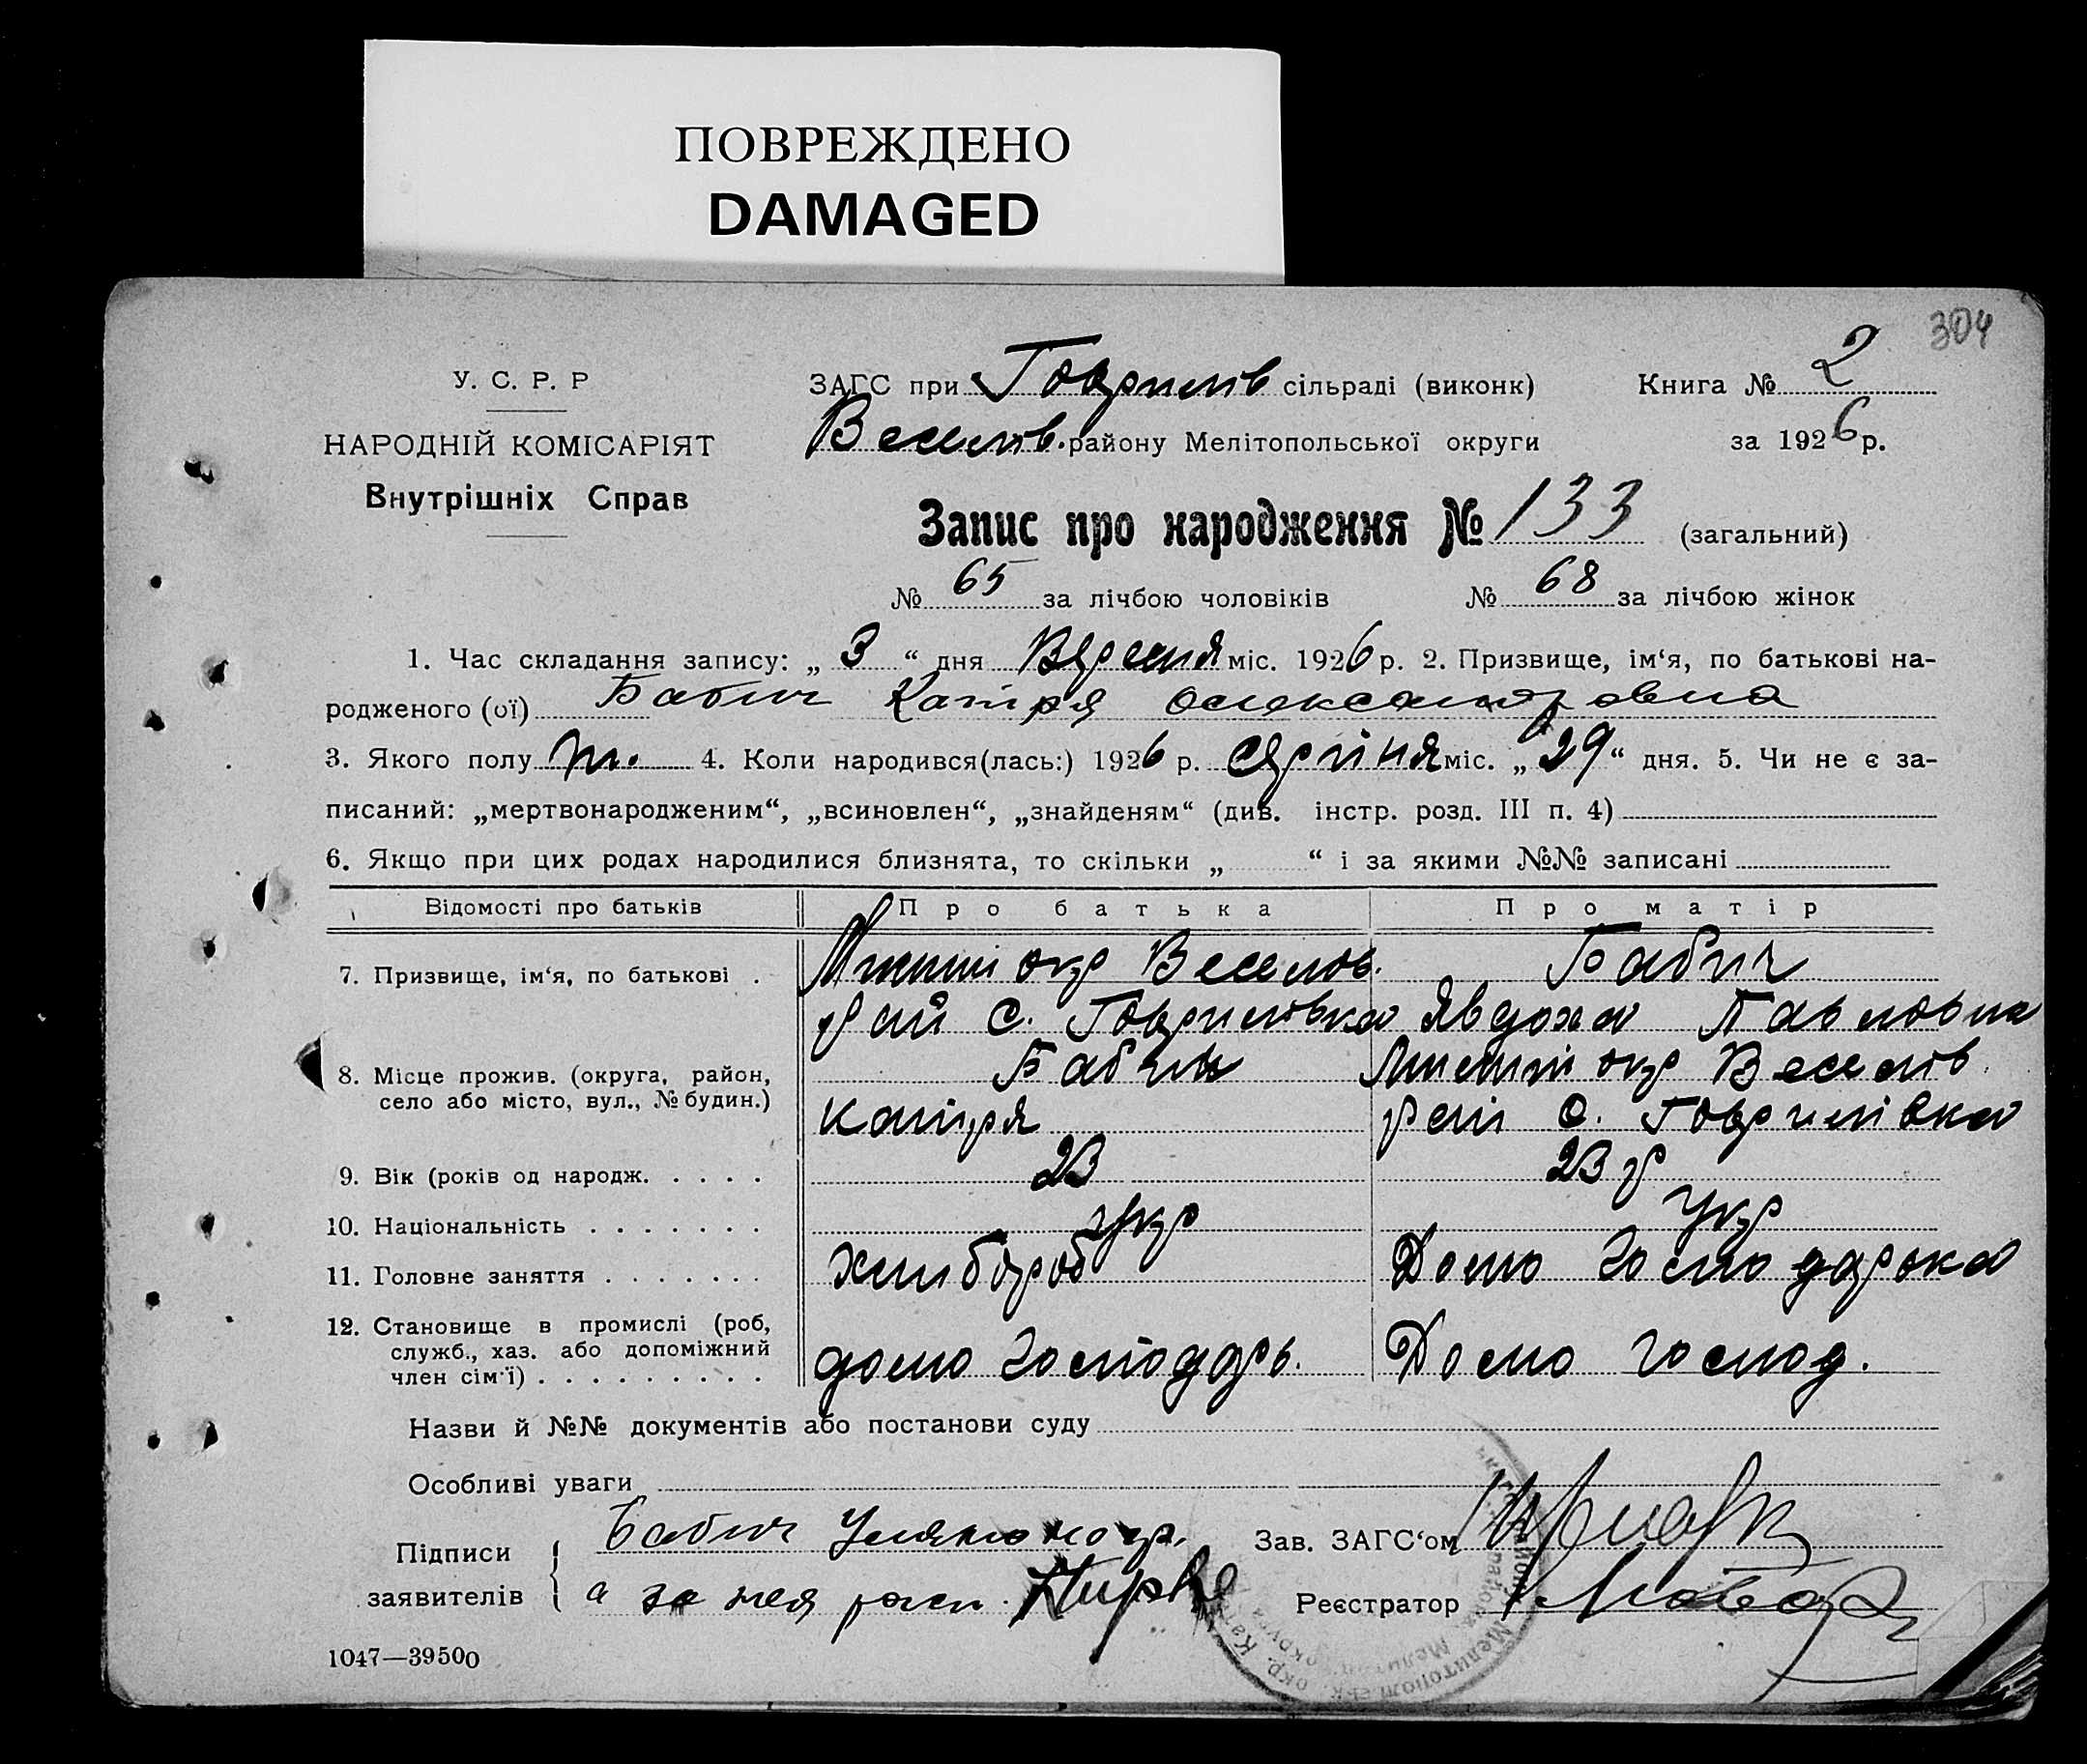 ПОВРЕЖДЕНО
DAMAGED
304
У. С. Р. Р
НАРОДНІЙ КОМІСАРІЯТ
Внутрішніх Справ
ЗАГС при Гаврилів сільраді (виконк) Книга № 2
Веселів. району Мелітопольської округи за 1926 р.
Запис про народження № 133 (загальний)
№ 65 за лічбою чоловіків № 68 за лічбою жінок
1. Час складання запису: „ 3 “ дня Вересня міс. 1926 р. 2. Призвище, ім‘я, по батькові на-
родженого (ої) Бабич Катря Олександровна
3. Якого полу ж. 4. Коли народився(лась:) 1926 р. серпня міс. „ 29 “ дня. 5. Чи не є за-
писаний: „мертвонародженим“, „всиновлен“, „знайденям“ (див. інстр. розд. III п. 4)
6. Якщо при цих родах народилися близнята, то скільки „ “ і за якими №№ записані
Відомості про батьків Про батька Про матір
7. Призвище, ім‘я, по батькові .
окр Веселов. Бабич
рай с. Гаврилівка Явдоха Павловна
8. Місце прожив. (округа, район,
село або місто, вул., № будин.)
Бабич окр Веселів.
Катря рай с. Гаврилівка
9. Вік (років од народж. . . . . 23 23 р
10. Національність . . . . . . . Укр Укр
11. Головне заняття . . . . . . . хлибороб Домо господарка
12. Становище в промислі (роб,
служб., хаз. або допоміжний
член сім‘ї) . . . . . . . . . домо господарь. Домо господ.
Назви й №№ документів або постанови суду
Особливі уваги
Підписи
заявителів
Бабич
а за нея расп.
Зав. ЗАГС‘ом
Реєстратор
1047—39500